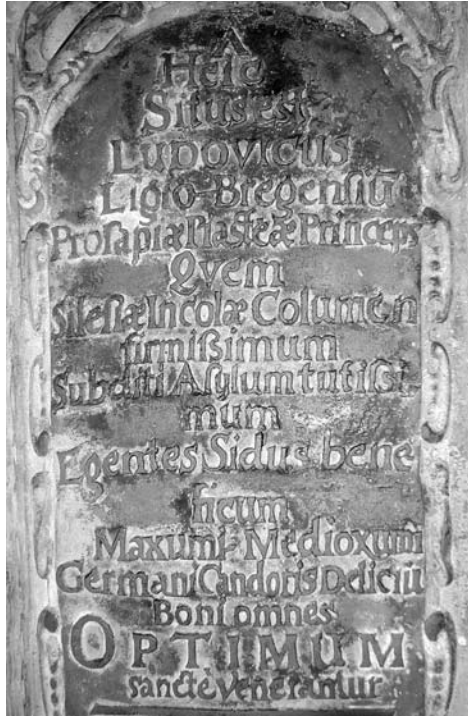 Heic
Situs est
LUDOVICUS
Ligio-Bregenſiū
Proſapiæ Piaſteæ Princeps
Qvem
Sileſiæ Incolæ Columen
firmißimum
Subditi Aſylum tutißi-
mum
Egentes Sidus bene
ficum
Maxumi-Medioxumi
Germani Candoris Deliciū
Boni omnes
OPTIMUM
sancte venerantur